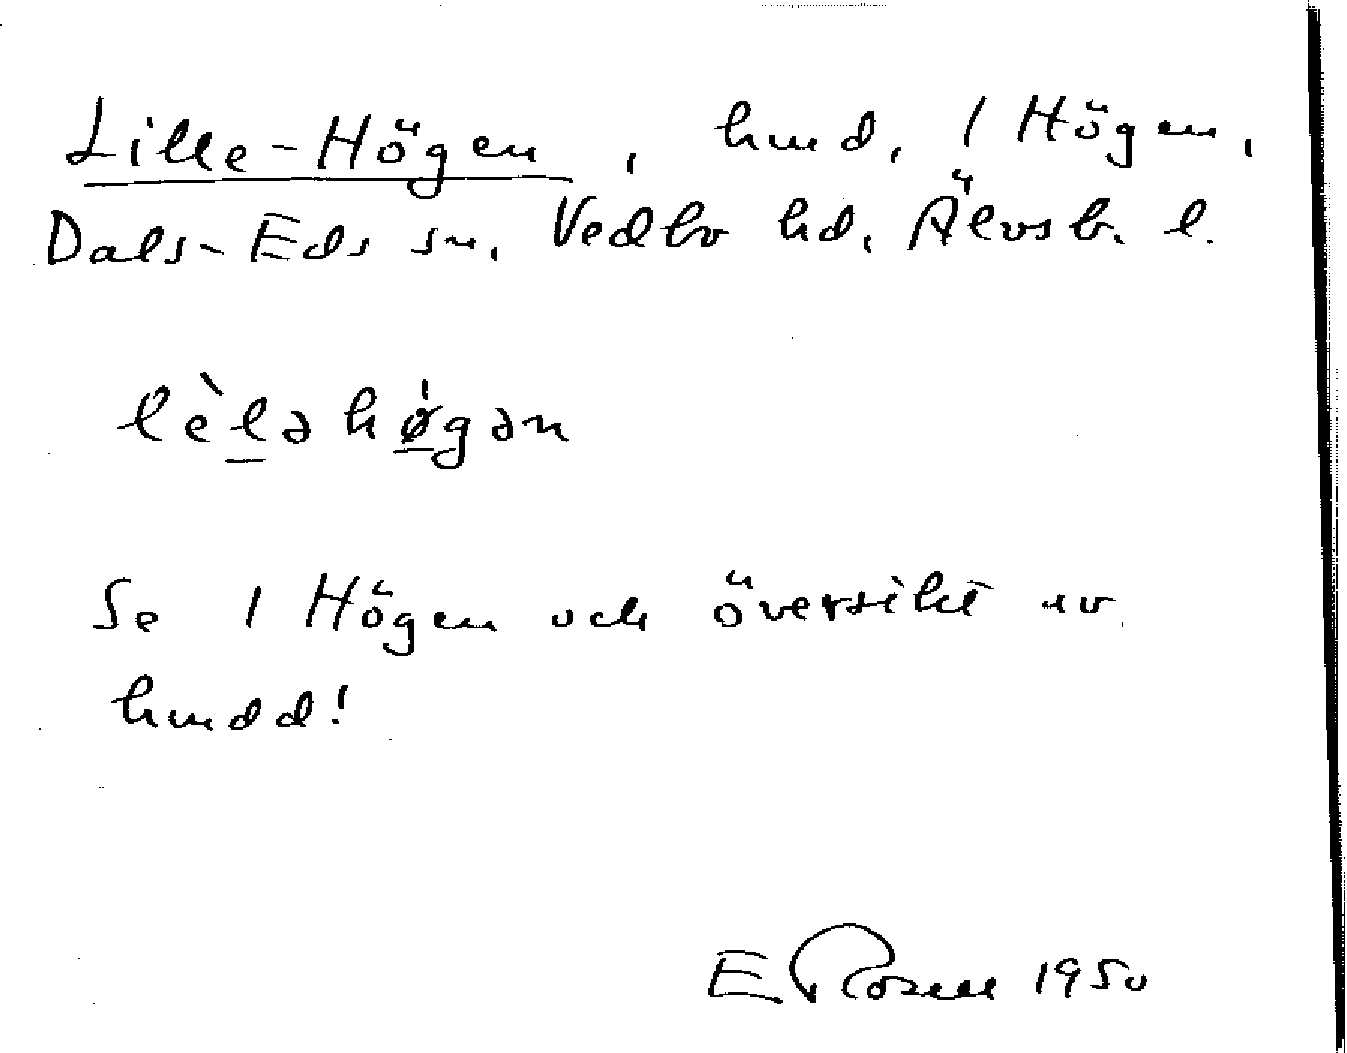 Lille-Högen, hmd, 1 Högen,
Dals-Eds sn, Vedbo hd, Älvsb. l.
lèlə hø̀gən
Se 1 Högen och översikt av
hmdd!
E Rosell 1950